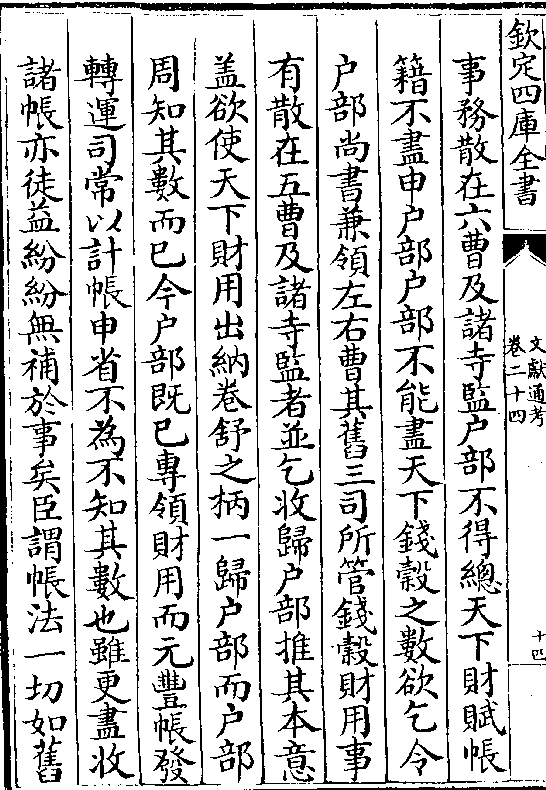 欽定四庫全書
文獻通考
卷二十四
十四
事務散在六曹及諸寺監户部不得總天下財賦帳
籍不盡申户部户部不能盡天下錢榖之數欲乞令
户部尚書兼領左右曹其舊三司所管錢榖財用事
有散在五曹及諸寺監者並乞收歸户部推其本意
盖欲使天下財用出納卷舒之柄一歸户部而户部
周知其數而已今户部既已專領財用而元豐帳發
轉運司常以計帳申省不為不知其數也雖更盡收
諸帳亦徒益紛紛無補於事矣臣謂帳法一切如舊